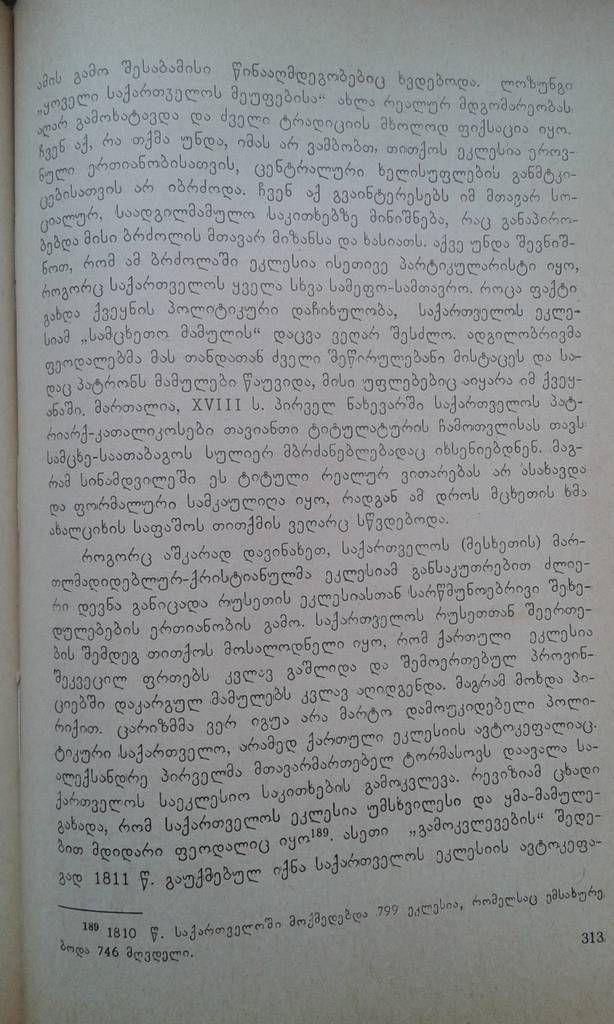 ამის გამო შესაბამისი წინააღმდეგობებიც ხვდებოდა. ლოზუნგი
„ყოველი საქართველოს მეუფებისა“ ახლა რეალურ მდგომარეობას
აღარ გამოხატავდა და ძველი ტრადიციის მხოლოდ ფიქსაცია იყო.
ჩვენ აქ, რა თქმა უნდა, იმას არ ვამბობთ, თითქოს ეკლესია ეროვ-
ნული ერთიანობისათვის, ცენტრალური ხელისუფლების განმტკი-
ცებისათვის არ იბრძოდა. ჩვენ აქ გვაინტერესებს იმ მთავარ სო-
ციალურ, საადგილმამულო საკითხებზე მინიშნება, რაც განაპირო-
ბებდა მისი ბრძოლის მთავარ მიზანსა და ხასიათს. აქვე უნდა შევნიშ-
ნოთ, რომ ამ ბრძოლაში ეკლესია ისეთივე პარტიკულარისტი იყო,
როგორც საქართველოს ყველა სხვა სამეფო-სამთავრო. როცა ფაქტი
გახდა ქვეყნის პოლიტიკური დაჩიხულობა, საქართველოს ეკლე-
სიამ „სამცხეთო მამულის“ დაცვა ვეღარ შესძლო. ადგილობრივმა
ფეოდალებმა მას თანდათან ძველი შეწირულებანი მისტაცეს და სა-
დაც პატრონს მამულები წაუვიდა, მისი უფლებებიც აიყარა იმ ქვეყ-
ანაში. მართალია, XVIII ს. პირველ ნახევარში საქართველოს პატ-
რიარქ-კათალიკოსები თავიანთი ტიტულატურის ჩამოთვლისას თავს
სამცხე-საათაბაგოს სულიერ მბრძანებლებადაც იხსენიებდნენ. მაგ-
რამ სინამდვილეში ეს ტიტული რეალურ ვითარებას არ ასახავდა
და ფორმალური სამკაულიღა იყო, რადგან ამ დროს მცხეთის ხმა
ახალციხის საფაშოს თითქმის ვეღარც სწვდებოდა.
როგორც აშკარად დავინახეთ, საქართველოს (მესხეთის) მარ-
თლმადიდებლურ-ქრისტიანულმა ეკლესიამ განსაკუთრებით ძლიე-
რი დევნა განიცადა რუსეთის ეკლესიასთან სარწმუნოებრივი შეხე-
დულებების ერთიანობის გამო. საქართველოს რუსეთთან შეერთე-
ბის შემდეგ თითქოს მოსალოდნელი იყო, რომ ქართული ეკლესია
შეკვეცილ ფრთებს კვლავ გაშლიდა და შემოერთებულ პროვინ-
ციებში დაკარგულ მამულებს კვლავ აღიდგენდა. მაგრამ მოხდა პი-
რიქით. ცარიზმმა ვერ იგუა არა მარტო დამოუკიდებელი პოლი-
ტიკური საქართველო, არამედ ქართული ეკლესიის ავტოკეფალიაც.
ალექსანდრე პირველმა მთავარმართებელ ტორმასოვს დაავალა სა-
ქართველოს საეკლესიო საკითხების გამოკვლევა. რევიზიამ ცხადი
გახადა, რომ საქართველოს ეკლესია უმსხვილესი და ყმა-მამულე-
ბით მდიდარი ფეოდალიც იყო¹⁸⁹. ასეთი „გამოკვლევების“ შედე-
გად 1811 წ. გაუქმებულ იქნა საქართველოს ეკლესიის ავტოკეფა-
¹⁸⁹ 1810 წ. საქართველოში მოქმედებდა 799 ეკლესია, რომელსაც ემსახურე-
ბოდა 746 მღვდელი.
313